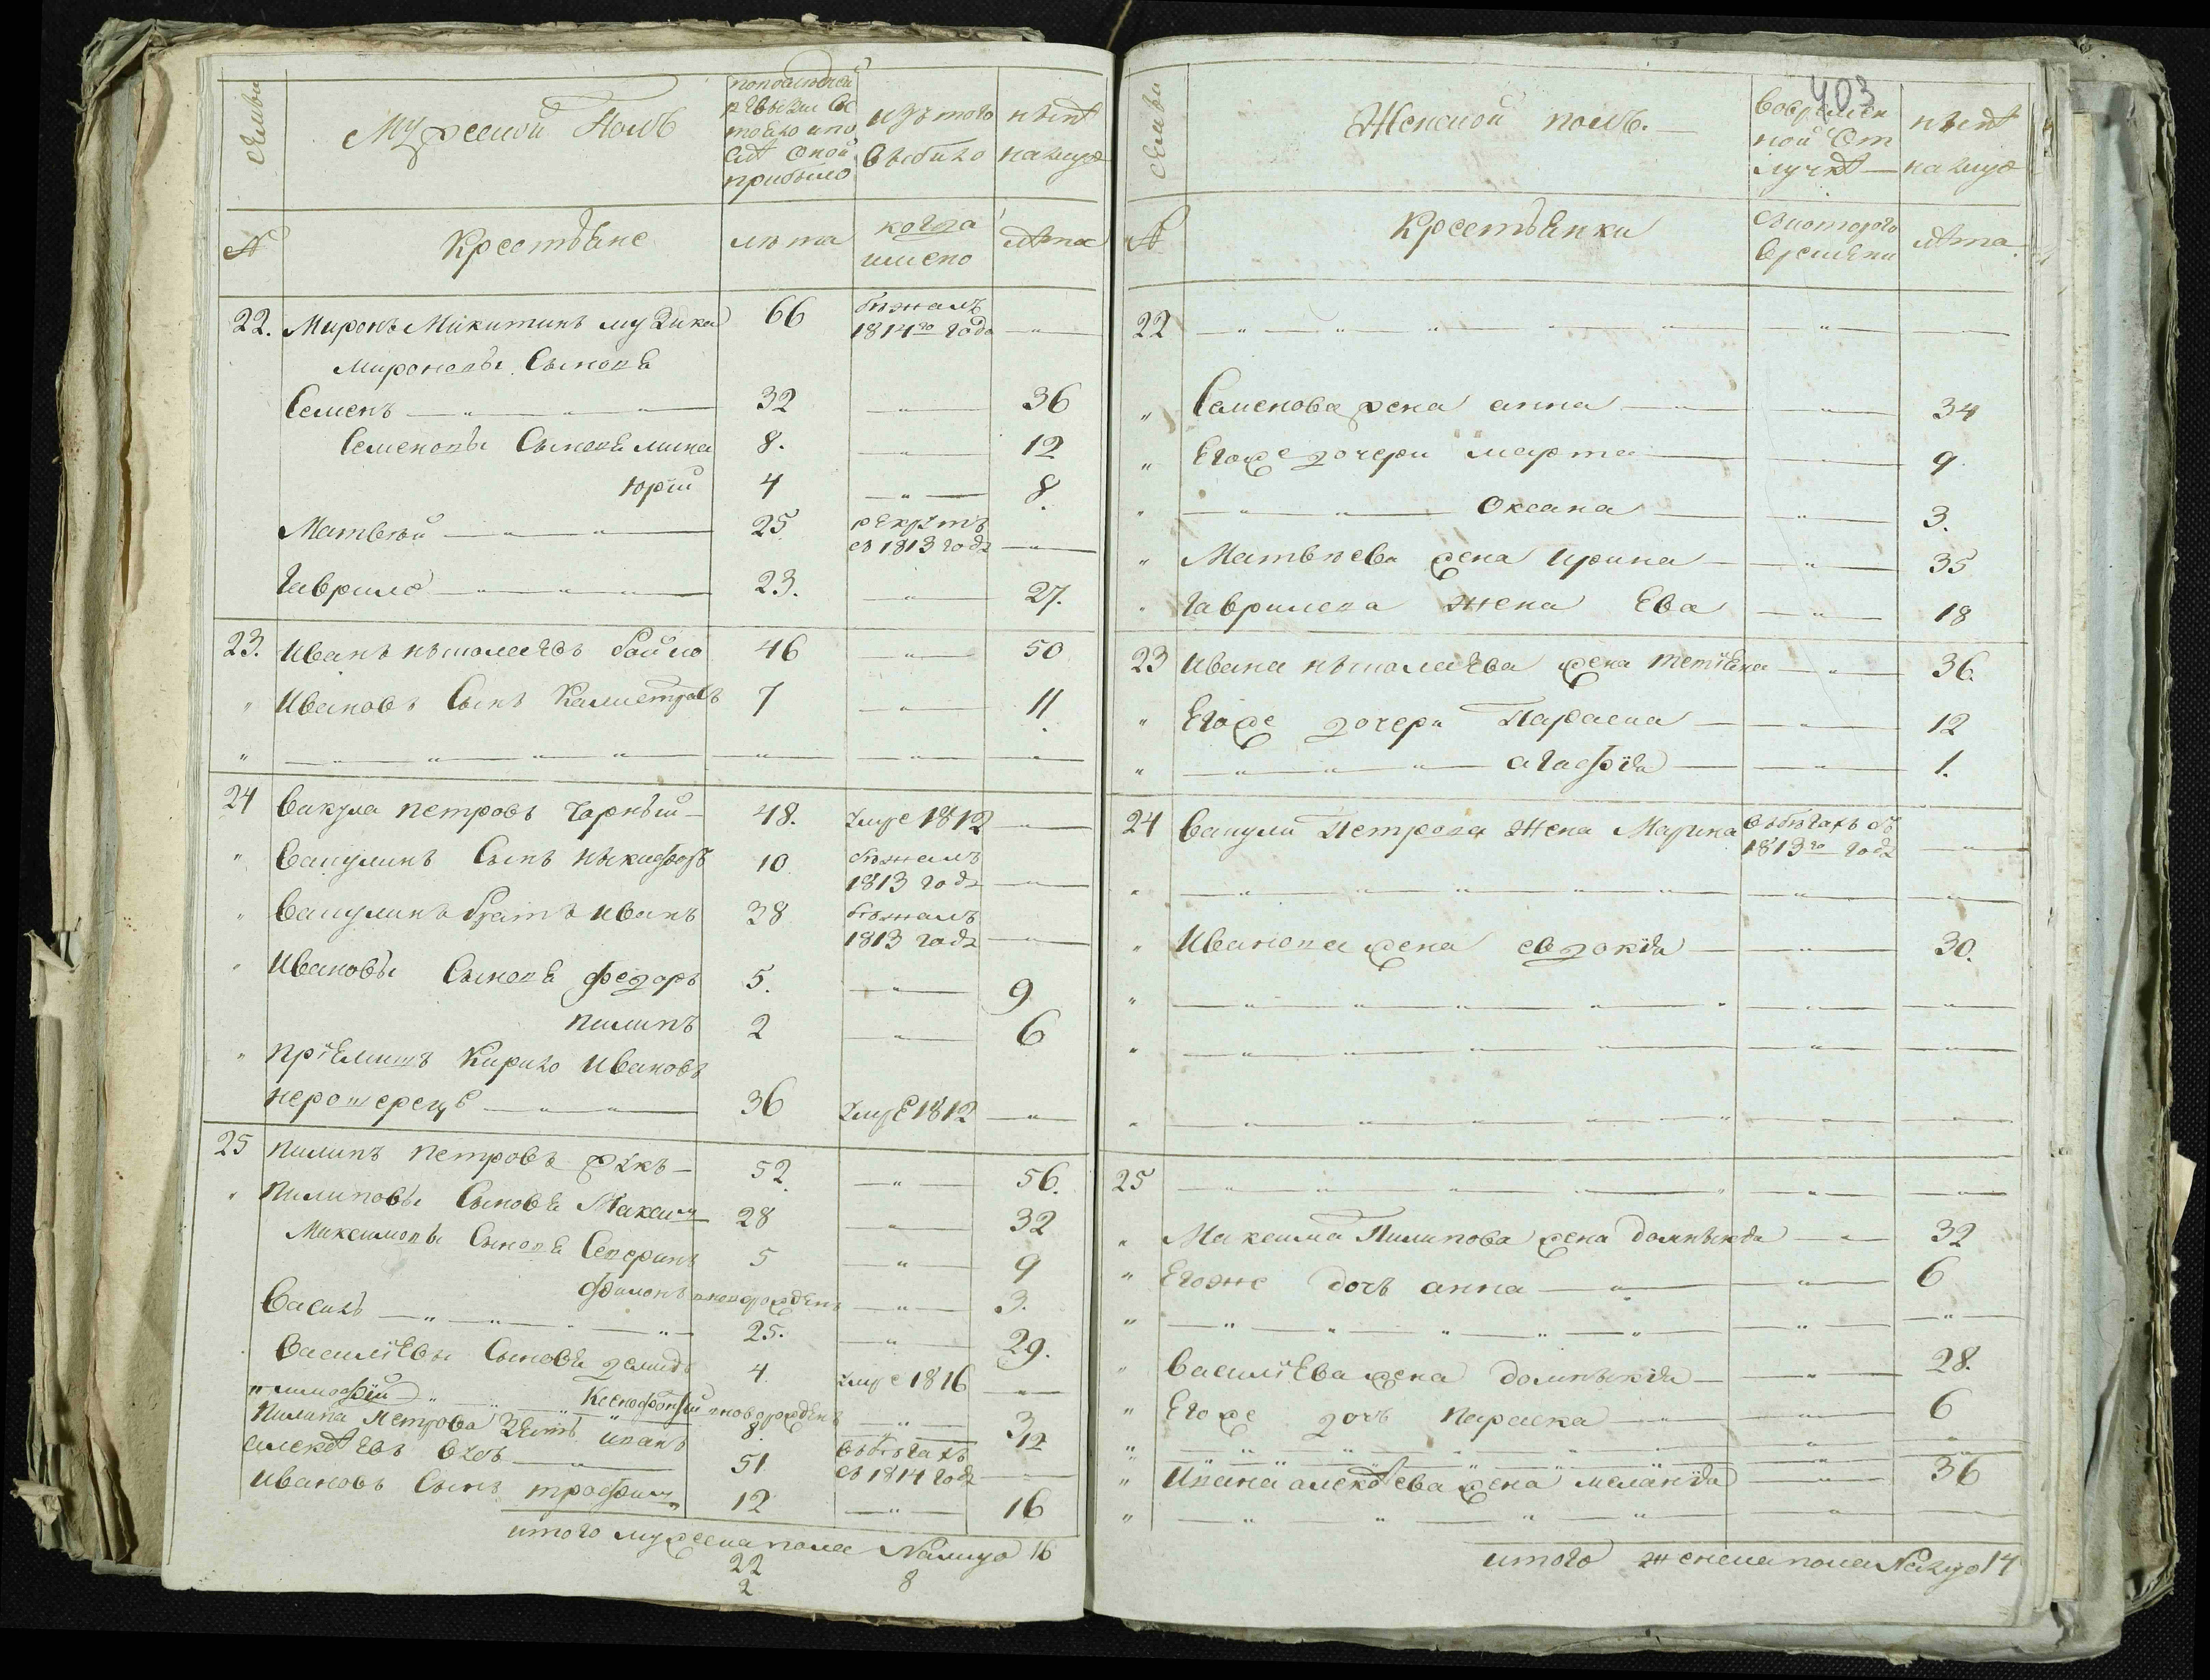 семьи
Мужеской Полъ
по последней
ревизии со
стояло и по
слѣ оной
прибыло
изъ того
выбыло
нынѣ
на лицо
№
Крестьяне
лѣта
когда
имено
лѣта
22. Миронъ Микитинъ музика 66 бѣжалъ 1814го года — " —
Мироновы Сыновя
Семенъ — " — 32 — " — 36
Семеновы Сыновя мина 8. — " — 12
юрій 4 — " — 8.
Матвѣй — " — 25 рекрутъ въ 1813 году — " —
Гаврило — " — 23. — " — 27.
23. Иванъ нѣколаевъ бойко 46 — " — 50
" Ивановъ Сынъ Калистратъ 7 — " — 11.
" — " — " — " —
24 Вакула петровъ чорный — 48. умре 1812 — " —
" Вакулинъ Сынъ нѣкифоръ 10 бѣжалъ 1813 году — " —
" Вакулинъ братъ иванъ 38 бѣжалъ 1813 году — " —
" Ивановы Сыновя федоръ 5. — " — 9
пилипъ 2 — " — 6
" пріемышъ Кирило Ивановъ
— " — 36 умре 1812 — " —
25 пилипъ петровъ жукъ — 52. — " — 56.
" Пилиповы Сыновя Максим 28 — " — 32
Максимовы Сыновя Северинъ 5 — " — 9
филонъ новорожденъ — " — 3.
Василь — " — 25. — " — 29.
Василіевы Сыновя демидъ 4. умре 1816 — " —
Ксенофонтій новорожденъ — " — 3
Пилипа Петрова Зять иванъ 8. — " — 12
алексѣевъ 51 въ бѣгахъ съ 1814 году — " —
Ивановъ Сынъ трофим 12 — " — 16
итого мужеска пола Налицо 16
22 8
2
403
семьи
Женской полъ. —
во времен
ной от
лучкѣ —
нынѣ
на лицо
№
Крестьянки
съ котораго
времяни
лѣта
22 — " — " — " —
" Семенова жена анна — " — 34
" Егоже дочери марта — " — 9.
" — " — Оксана — " — 3.
" Матвѣева жена Ирина — " — 35
" Гаврилова жена Ева — " — 18
23 Ивана нѣколаева жена тетіяна — " — 36.
" Егоже дочери Параска — " — 12
" — " — агафія — " — 1.
24 Вакули Петрова Жена Марина въ бѣгахъ съ 1813го году — " —
" — " — " — " —
" Иванова жена евдокія — " — 30.
" — " — " — " —
" — " — " — " —
" — " — " — " —
25 — " — " — " —
" Максима Пилипова жена домнѣкія — " — 32
" Егоже дочь анна — " — 6
" — " — " — " —
" Василіева жена домнѣкія — " — 28.
" Егоже дочь параска — " — 6
" — " — " — " —
" Ивана алексѣева жена меланія — " — 36
" — " — " — " —
итого женска пола Налицо 14